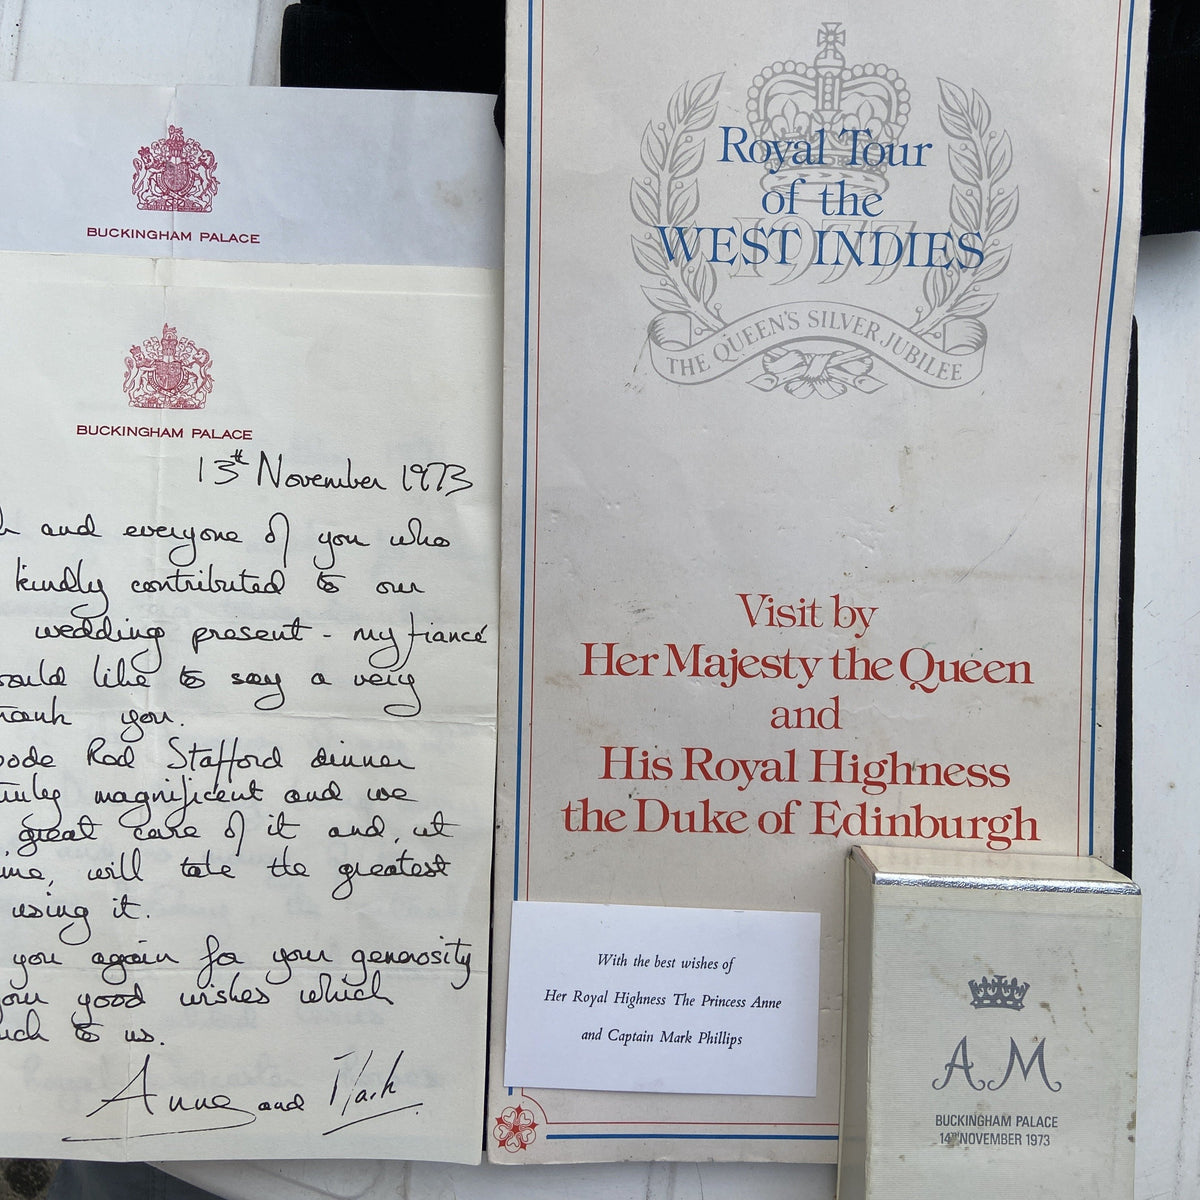 BUCKINGHAM PALACE
BUCKINGHAM PALACE
13th November 1973
and everyone of you who
kindly contributed to our
wedding present - my fiancé
would like to say a very
thank you.
Spode Red Stafford dinner
truly magnificent and we
great care of it and, at
time, will take the greatest
using it.
you again for your generosity
your good wishes which
much to us.
Anne and Mark
Royal Tour
of the
WEST INDIES
1977
THE QUEEN'S SILVER JUBILEE
Visit by
Her Majesty the Queen
and
His Royal Highness
the Duke of Edinburgh
With the best wishes of
Her Royal Highness The Princess Anne
and Captain Mark Phillips
A M
BUCKINGHAM PALACE
14TH NOVEMBER 1973